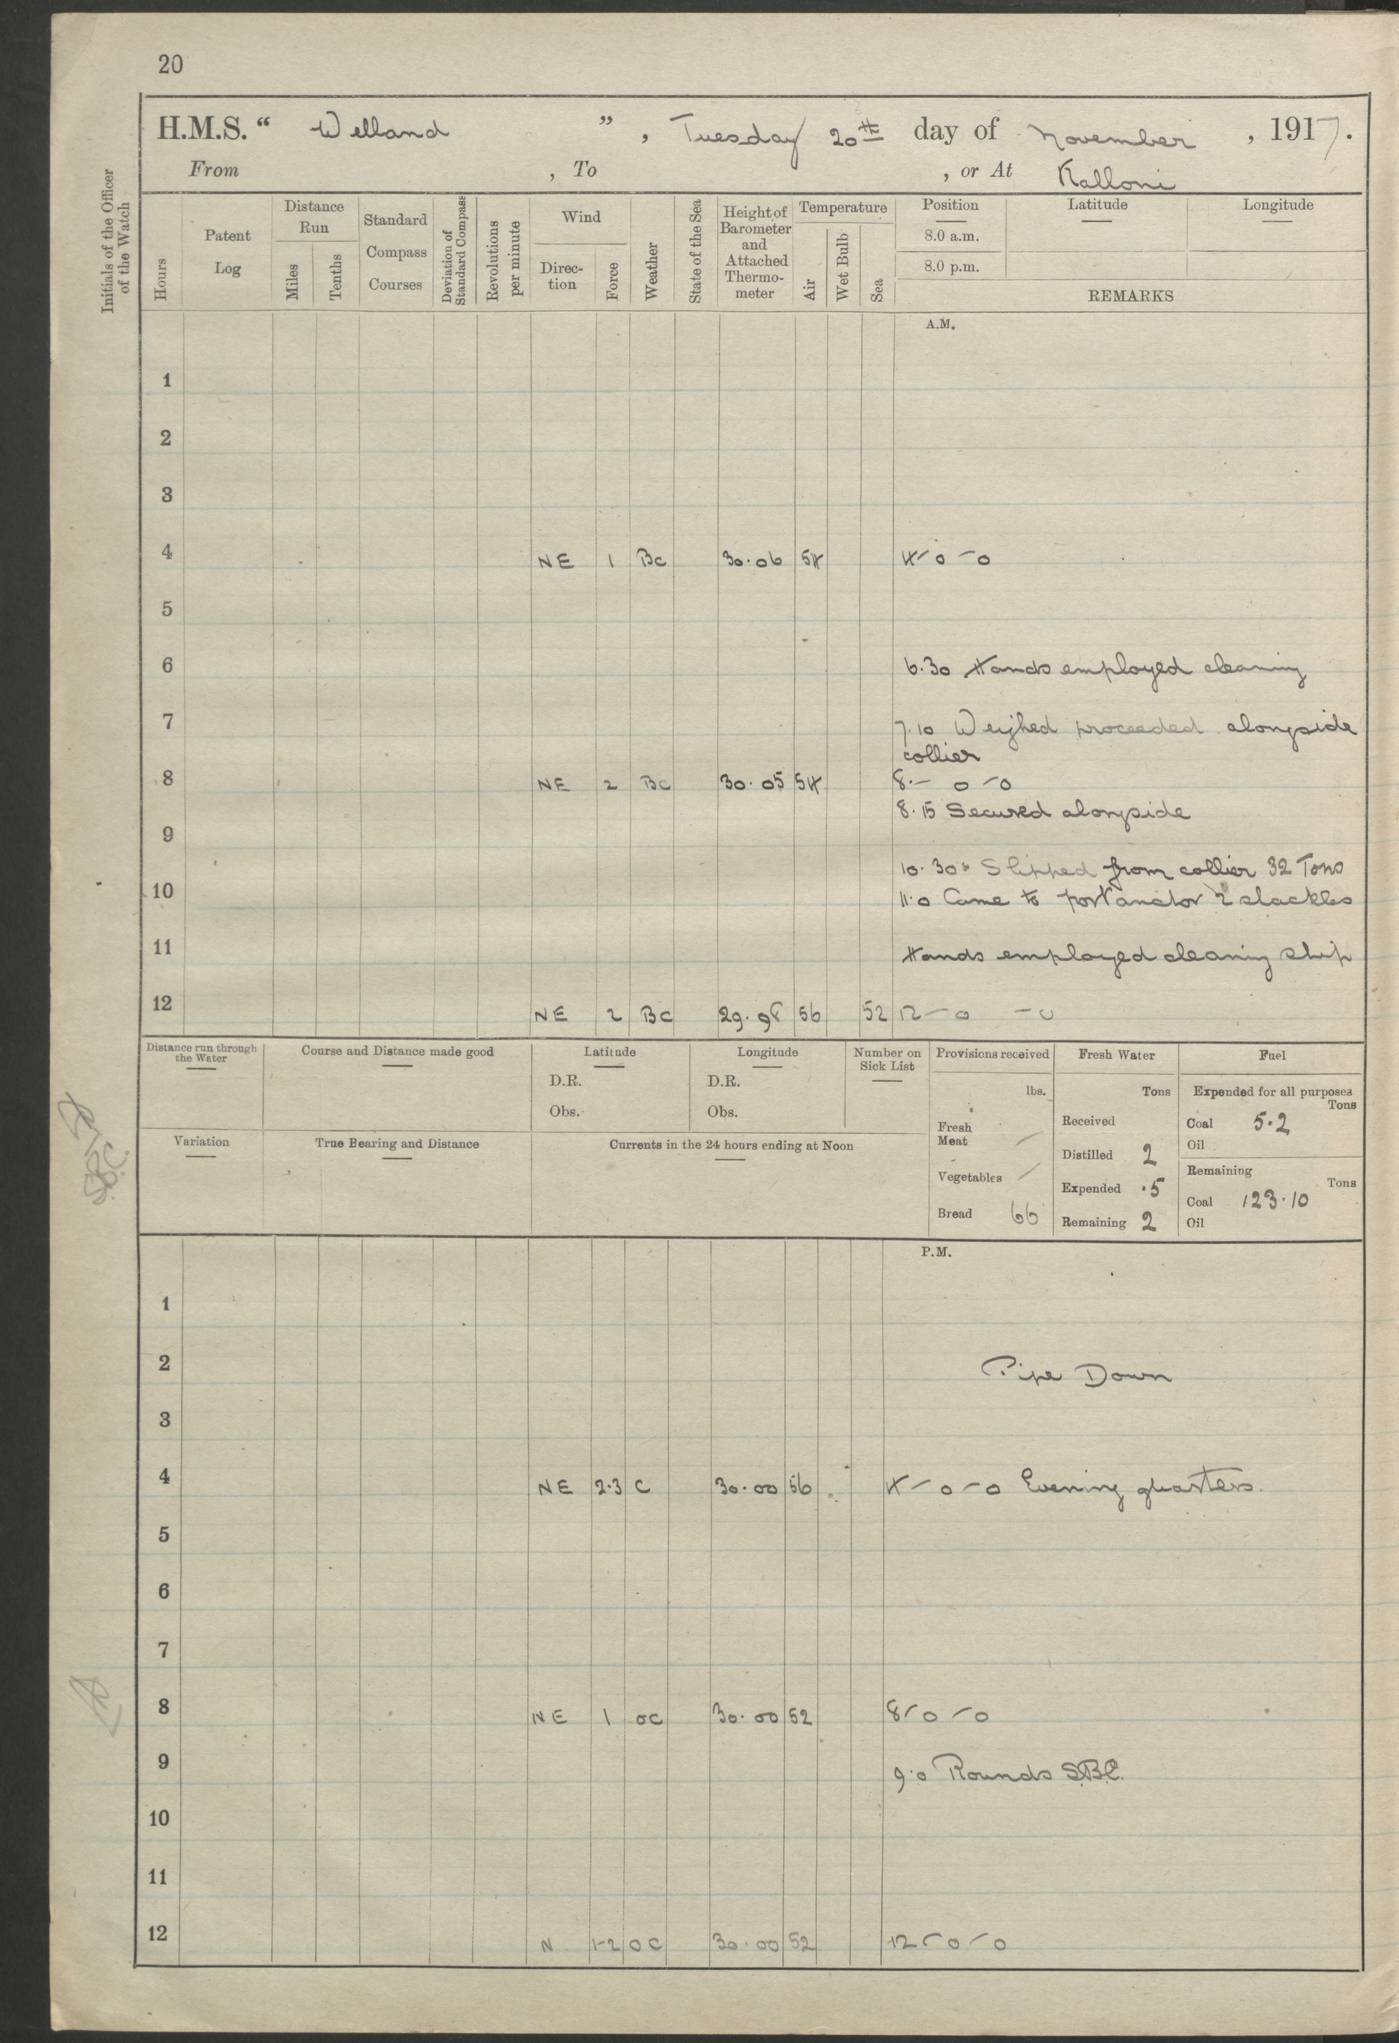 20
H.M.S. “ Welland ” , Tuesday 20th day of November , 1917.
From , To , or At Kalloni
Initials of the Officer of the Watch
Hours
Patent Log
Distance Run
Miles
Tenths
Standard Compass Courses
Deviation of Standard Compass
Revolutions per minute
Wind
Direc-tion
Force
Weather
State of the Sea
Height of Barometer and Attached Thermo-meter
Temperature
Air
Wet Bulb
Sea
Position
8.0 a.m.
8.0 p.m.
Latitude
Longitude
REMARKS
A.M.
1
2
3
4 NE 1 Bc 30.06 54 4-0-0
5
6 6.30 Hands employed cleaning
7 7.10 Weighed proceeded alongside
collier
8 NE 2 Bc 30.05 54 8.- 0-0
8.15 Secured alongside
9
10.30 Slipped from collier 32 Tons
10
11.0 Came to port anchor 2 shackles
11 Hands employed cleaning ship
12 NE 2 Bc 29.98 56 52 12-0 -0
Distance run through the Water
Course and Distance made good
Latitude
D.R.
Obs.
Longitude
D.R.
Obs.
Number on Sick List
Variation
True Bearing and Distance
Currents in the 24 hours ending at Noon
Provisions received
lbs.
Fresh Meat /
Vegetables /
Bread 66
Fresh Water
Tons
Received
Distilled 2
Expended .5
Remaining 2
Fuel
Expended for all purposes
Tons
Coal 5.2
Oil
Remaining
Tons
Coal 123.10
Oil
P.M.
1
2 Pipe Down
3
4 NE 2.3 C 30.00 56 4-0-0 Evening quarters.
5
6
7
8 NE 1 OC 30.00 52 8-0-0
9 9.0 Rounds S.B.C.
10
11
12 N 1-2 OC 30.00 52 12-0-0